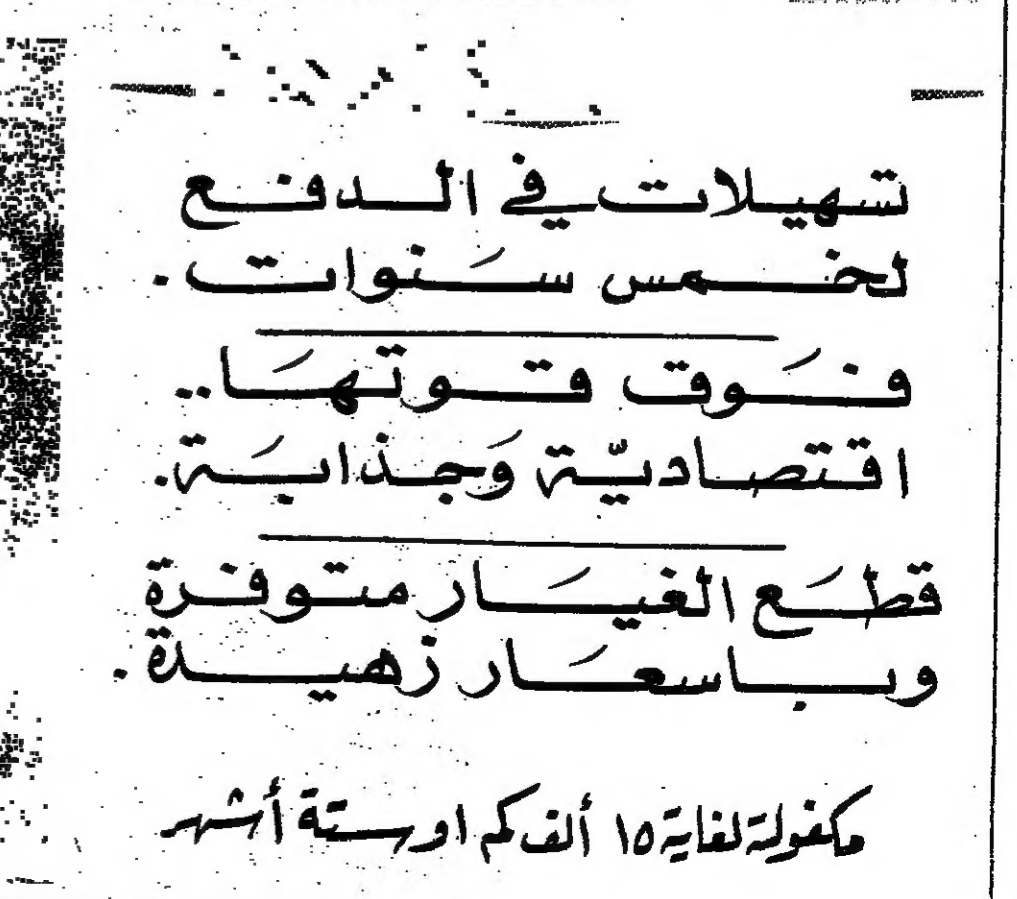 تسهيلات في الدفع
لخمس سنوات .
فَوق قوتهَا ..
اقتصاديّة وَجذابَة .
قطَع الغيَار متوفرة
وباسعَار زهيدة .
مكفولة لغاية ١٥ ألف كم او ستة أشهر